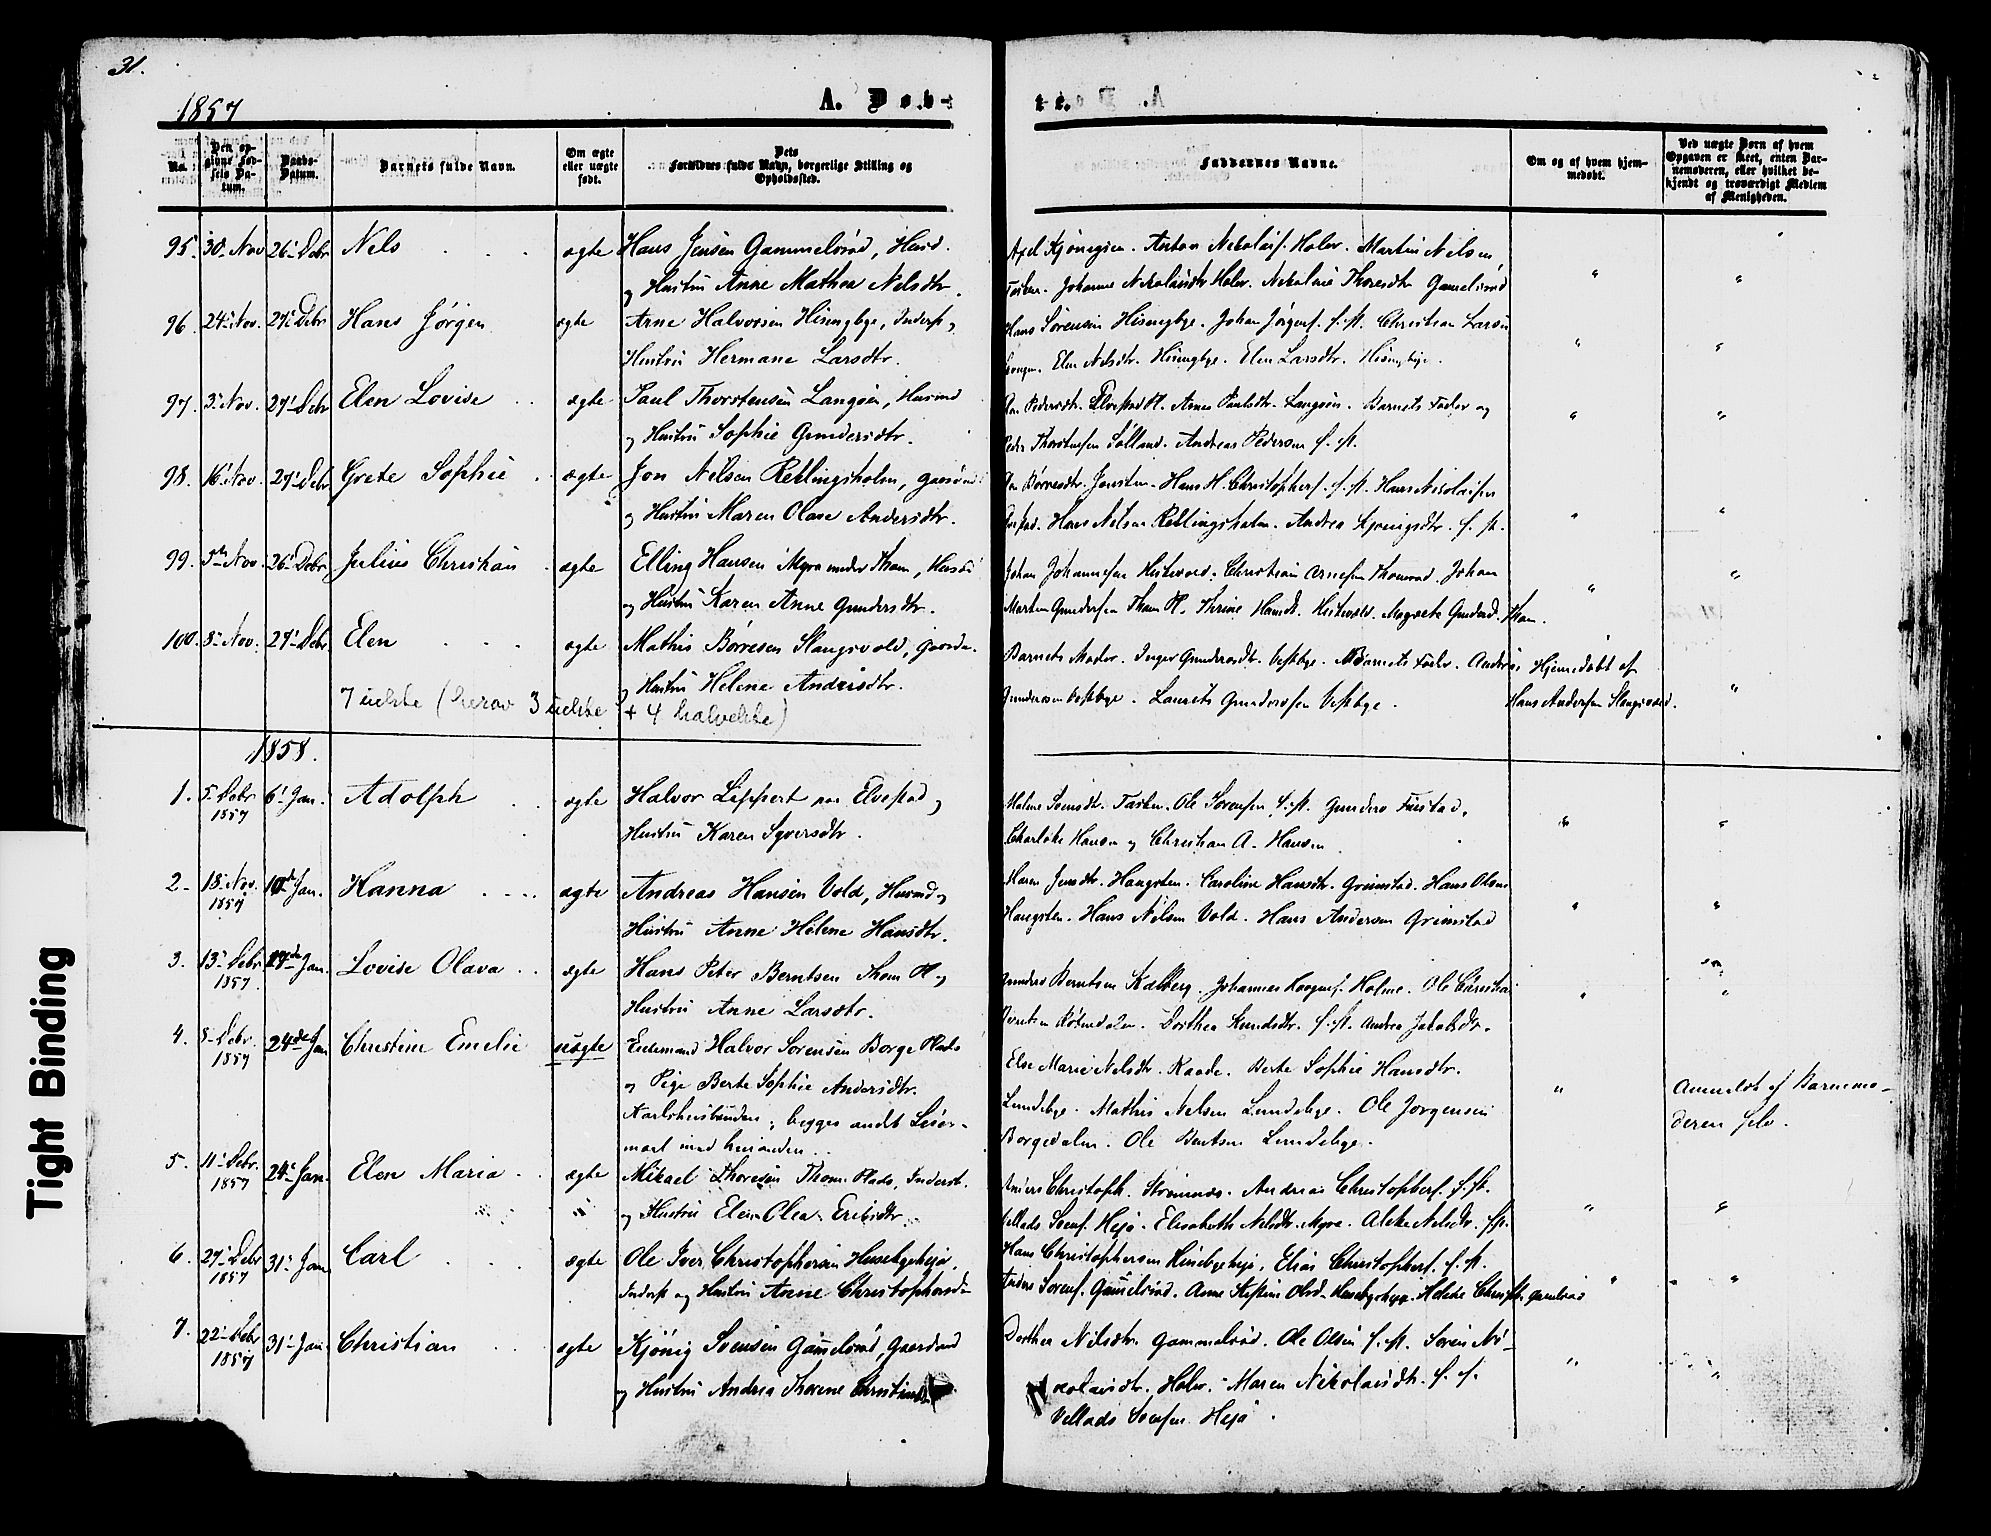 31.
1857
A. Døb-
te.
No.
Den opgivne Fødsels Datum.
Daabs-Datum.
Barnets fulde Navn.
Om ægte eller uægte født.
Dets Forældres fulde Navn, borgerlige Stilling og Opholdssted.
Faddernes Navne.
Om og af hvem hjemmedøbt.
Ved uægte Børn af hvem Opgaven er skeet, enten Barnemoderen, eller hvilket bekjendt og troværdigt Medlem af Menigheden.
95. 30. Nov 26. Debr Nels ægte Hans Jensen Gammelsrød, Husd.
og Hustru Anne Mathea Nelsdtr.
Johanne Nikolaisdtr Holer. Nikoline Thoresdtr Gamelsrød
96. 24. Nov. 27. Debr Hans Jørgen ægte Arne Halvorsen Hisengbye, Inderst og
Hustru Hermane Larsdtr.
Hans Sørensen Hisengbye. Johan Jørgens. s. st. Christian Larsen
Elen Nelsdtr. Hisengbye. Elen Larsdtr. Hisengbye.
97. 3. Nov. 27. Debr Elen Lovise ægte Paul Thorstensen Langøen, Husmd
og Hustru Sophie Gundersdtr.
Pedersdtr. Elvestad Pl. Arne Paulsdtr. Langøen. Barnets Fader og
Peder Thorstensen Solland. Andreas Pedersen s. st.
98. 16. Nov. 27. Debr Grete Sophie ægte Jon Nelsen Rellingsholm, gaard
og Hustru Maren Olave Andersdtr.
Hans Nelsen Rellingsholm. Andrea s. st.
99. 5te Nov. 26. Debr Julius Christian ægte Elling Hansen Myra under Thom, Husmd
og Hustru Karen Anne Gundersdtr.
Johan Johannesen Christian Arnesen Johan
Marten Gundersen Thom Pl. Thrine Hansdt. Magrete Gundersd. Thom.
100. 8. Nov. 27. Debr Elen ægte Mathis Børresen Slangsvold, gaardm.
og Hustru Helene Andrisdtr.
Barnets Moder. Inger Gundersdtr. Vestbye. Barnets Fader. Andreas
Gundersen Vestbye. Laurets Gundersen Vestbye.
Hjemedøbt af
Hans Andersen Slangsvold.
7 uekte (herav 3 uekte + 4 halvekte)
1858.
1. 5. Debr 1857 6. Jan. Adolph ægte Halvor Lippert paa Elvestad og
Hustru Karen Syversdtr.
Ole Sørensen s. st. Gunder
Charlotte Hansen og Christian A. Hansen
2. 18. Nov. 1857 10de Jan. Hanna ægte Andreas Hansen Vold, Husmd og
Hustru Anne Helene Hansdtr.
Maren Jensdtr. Haugsten. Caroline Hansdtr. Grimstad. Hans Olsen
Haugsten. Hans Nelsen Vold. Hans Andersen Grimstad
3. 13. Debr 1857 17de Jan. Lovise Olava ægte Hans Peter Berntsen Thom Pl. og
Hustru Anne Larsdtr.
Gunder Berntsen Kalberg. Johannes Holme. Ole Christian
Dorthea Knudsdtr. s. st. Andrea Jakobsdtr.
4. 8. Debr. 1857 24de Jan Christine Emelie uægte Enkemand Halvor Sørensen Borge Plads
og Pige Berte Sophie Andersdtr.
Karlshusbunden; begges andet Leier-
maal med hinanden.
Else Marie Nelsdtr. Raade. Berte Sophie Hansdtr.
Lundebye. Mathis Nelsen Lundebye. Ole Jørgensen
Borgedalen. Ole Berntsen Lundebye.
Anmeldt af Barnemo-
deren selv.
5. 11. Debr. 1857 24. Jan. Elen Maria ægte Mikael Thoresen Thom Plads, Inderst.
og Hustru Elen Olea Eriksdtr.
Anders Christoph. Strømnes. Andreas Christophers. s. st.
Vellads Svens. Hejø. Elisabeth Nelsdtr. Myra. Aleke Nelsdtr. s. st.
6. 27. Debr 1857 31. Jan Carl ægte Ole Iver Christophersen Husebyehejø,
Inderst og Hustru Anne Christophersdr
Hans Christophersen Husebyehejø. Elias Christophers. s. st.
Andreas Sørens. Gamelsrød. Anne Olsd. Husebyehejø. Helene Christ. Gamelsrød
7. 22. Debr 1857 31. Jan. Christian ægte Kjønig Svensen Gamelsrød, Gaardmd
og Hustru Andrea Thorene
Dorthea Nilsdtr. Gammelsrød. Ole Olsen s. st. Søren Ni-
kolaisdtr. Holer. Maren Nikolaisdtr. s. st.
Vellads Svensen Hejø.
Tight Binding